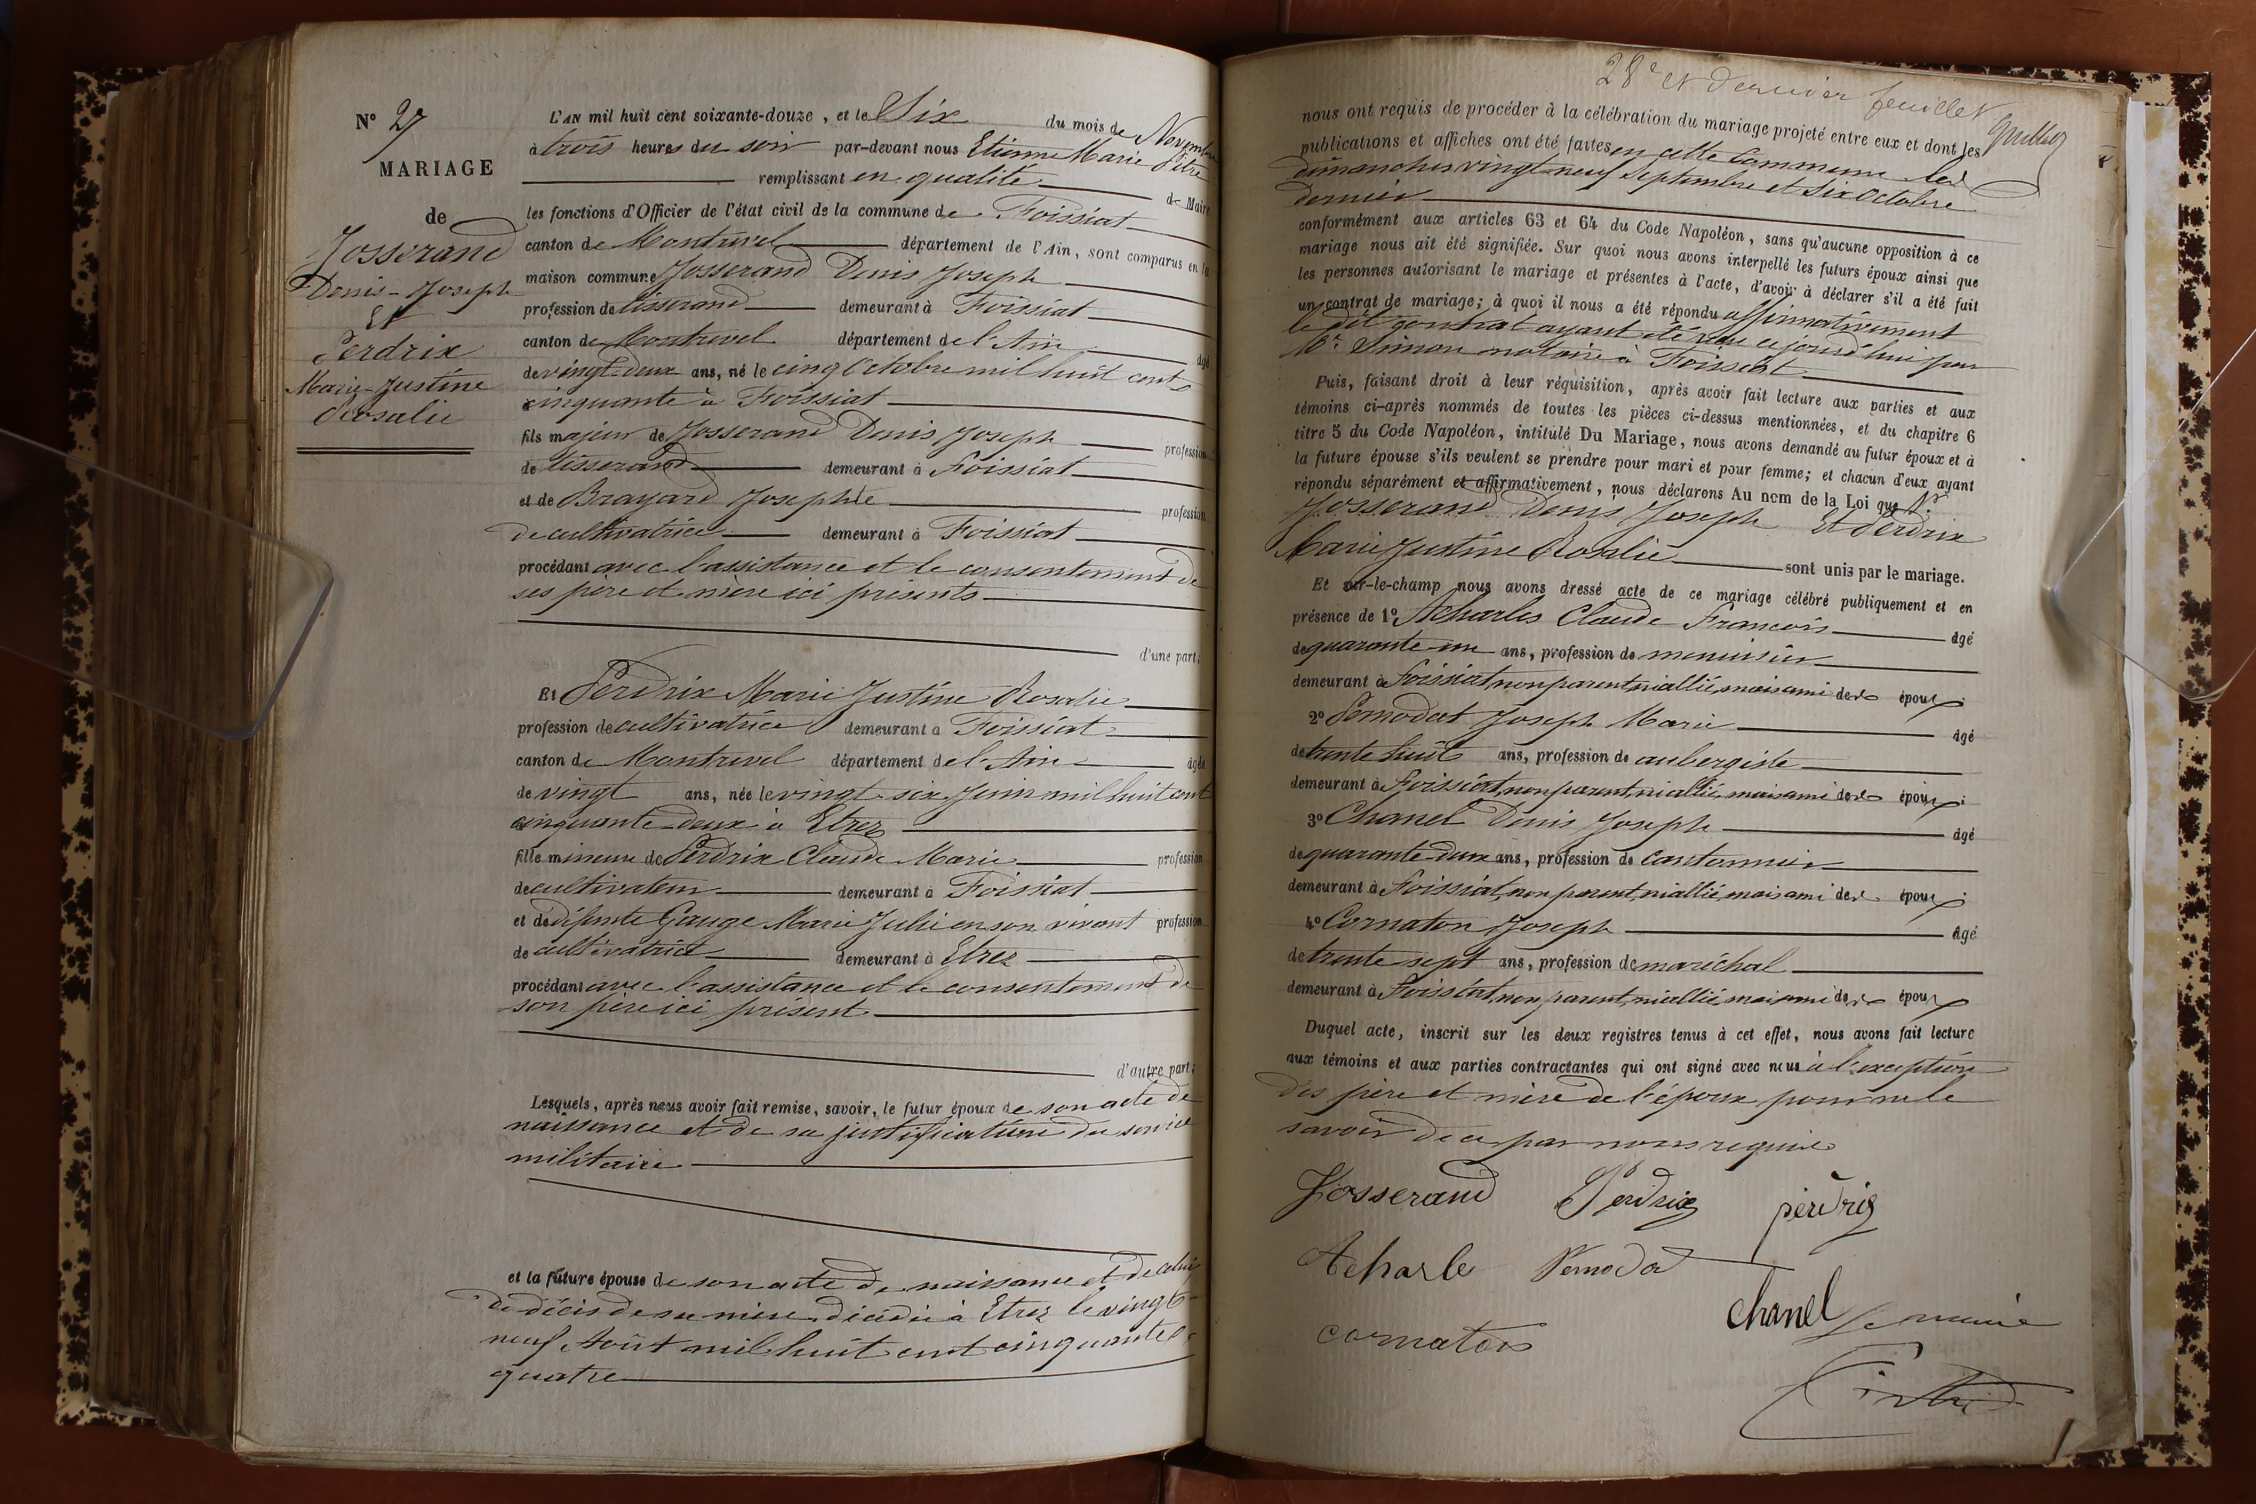 N° 27
MARIAGE
de
Josserand
Denis-Joseph
Et
Perdrix
Marie-Justine
Rosalie
L'AN mil huit cent soixante-douze, et le Six du mois de Novembre
à trois heures du soir par-devant nous Etienne Marie
remplissant en qualité de Maire
les fonctions d'Officier de l'état civil de la commune de Foissiat
canton de Montrevel département de l'Ain, sont comparus en la
maison commune Josserand Denis Joseph
profession de tisserand demeurant à Foissiat
canton de Montrevel département de l'Ain âgé
de vingt-deux ans, né le cinq Octobre mil huit cent
cinquante à Foissiat
fils majeur de Josserand Denis Joseph profession
de tisserand demeurant à Foissiat
et de Brayard Josephte profession
de cultivatrice demeurant à Foissiat
procédant avec l'assistance et le consentement de
ses père et mère ici présents
d'une part;
Et Perdrix Marie Justine Rosalie
profession de cultivatrice demeurant à Foissiat
canton de Montrevel département de l'Ain âgée
de vingt ans, née le vingt-six Juin mil huit cent
cinquante-deux à Etrez
fille mineure de Perdrix Claude Marie profession
de cultivateur demeurant à Foissiat
et de défunte Gauge Marie Julie en son vivant profession
de cultivatrice demeurant à Etrez
procédant avec l'assistance et le consentement de
son père ici présent
d'autre part;
Lesquels, après nous avoir fait remise, savoir, le futur époux de son acte de
naissance et de sa justification du service
militaire
et la future épouse de son acte de naissance et de celui
de décès de sa mère décédée à Etrez le vingt-
neuf Août mil huit cent cinquante
quatre
28e et dernier feuillet
nous ont requis de procéder à la célébration du mariage projeté entre eux et dont les
publications et affiches ont été faites en cette Commune les
dimanches vingt-neuf Septembre et Six Octobre
dernier
conformément aux articles 63 et 64 du Code Napoléon, sans qu'aucune opposition à ce
mariage nous ait été signifiée. Sur quoi nous avons interpellé les futurs époux ainsi que
les personnes autorisant le mariage et présentes à l'acte, d'avoir à déclarer s'il a été fait
un contrat de mariage; à quoi il nous a été répondu affirmativement
le dit contrat ayant été reçu ce jourd'hui par
Me Simon notaire à Foissiat
Puis, faisant droit à leur réquisition, après avoir fait lecture aux parties et aux
témoins ci-après nommés de toutes les pièces ci-dessus mentionnées, et du chapitre 6
titre 5 du Code Napoléon, intitulé Du Mariage, nous avons demandé au futur époux et à
la future épouse s'ils veulent se prendre pour mari et pour femme; et chacun d'eux ayant
répondu séparément et affirmativement, nous déclarons Au nom de la Loi que Sr
Josserand Denis Joseph Et Perdrix
Marie Justine Rosalie sont unis par le mariage.
Et sur-le-champ nous avons dressé acte de ce mariage célébré publiquement et en
présence de 1° Acharles Claude François âgé
de quarante-un ans, profession de menuisier
demeurant à Foissiat, non parent, ni allié, mais ami des époux;
2° Pernodat Joseph Marie âgé
de trente huit ans, profession de aubergiste
demeurant à Foissiat, non parent, ni allié, mais ami des époux;
3° Chanel Denis Joseph âgé
de quarante-deux ans, profession de cantonnier
demeurant à Foissiat, non parent, ni allié, mais ami des époux;
4° Cornaton Joseph âgé
de trente sept ans, profession de maréchal
demeurant à Foissiat, non parent, ni allié, mais ami des époux
Duquel acte, inscrit sur les deux registres tenus à cet effet, nous avons fait lecture
aux témoins et aux parties contractantes qui ont signé avec nous à l'exception
des père et mère de l'époux pour ne le
savoir de ce par nous requis
Josserand Perdrix perdrix
Acharle Pernodat
chanel Le maire
cornaton